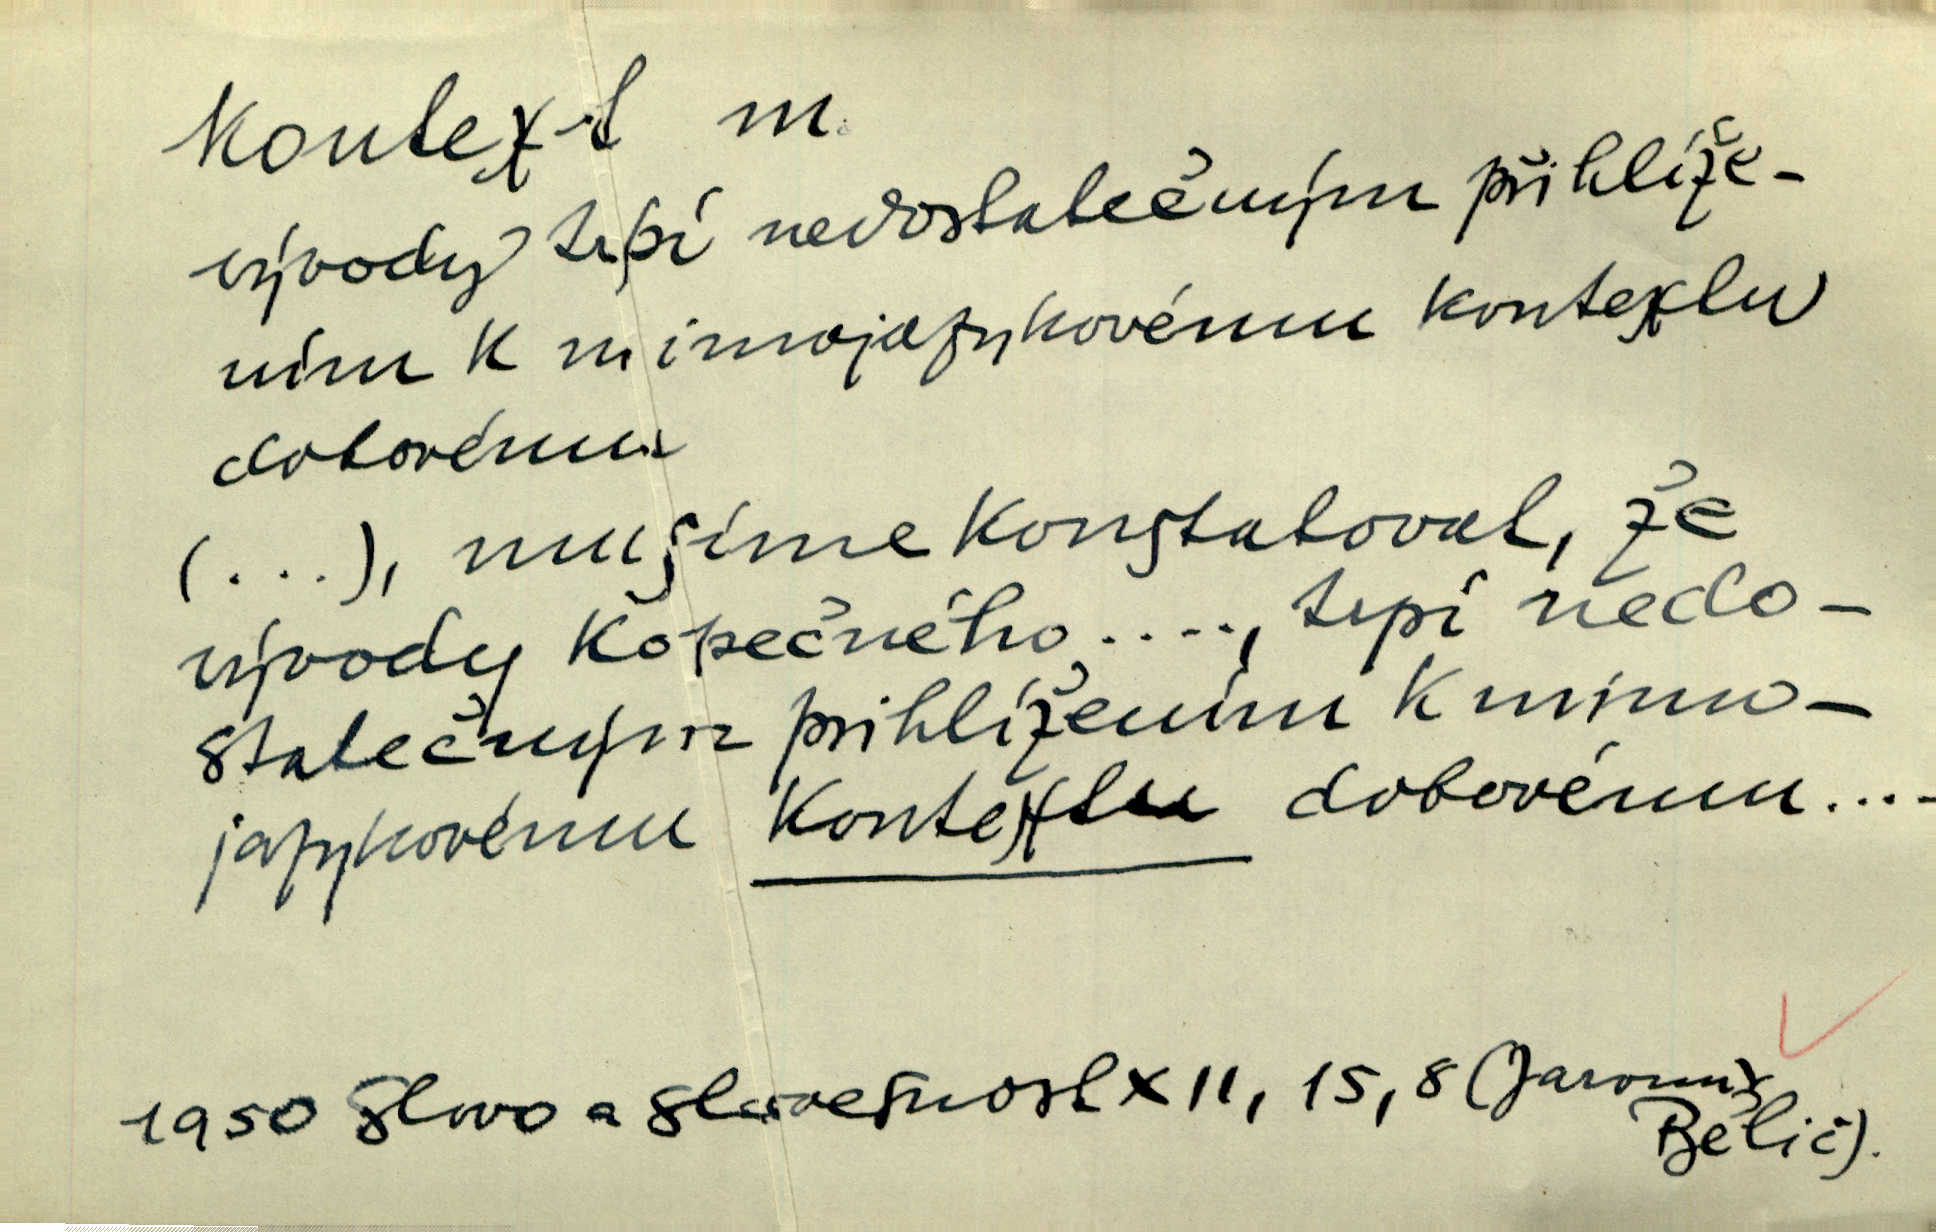 Kontext m.
vývody trpí nedostatečným přihlíže-
ním k mimojazykovému kontextu
dobovému
(...), musíme konstatovat, že
vývody Kopečného ...., trpí nedo-
statečným přihlížením k mimo-
jazykovému kontextu dobovému ....
1950 Slovo a slovesnost XII, 15, 8 (Jaromír
Bělič).